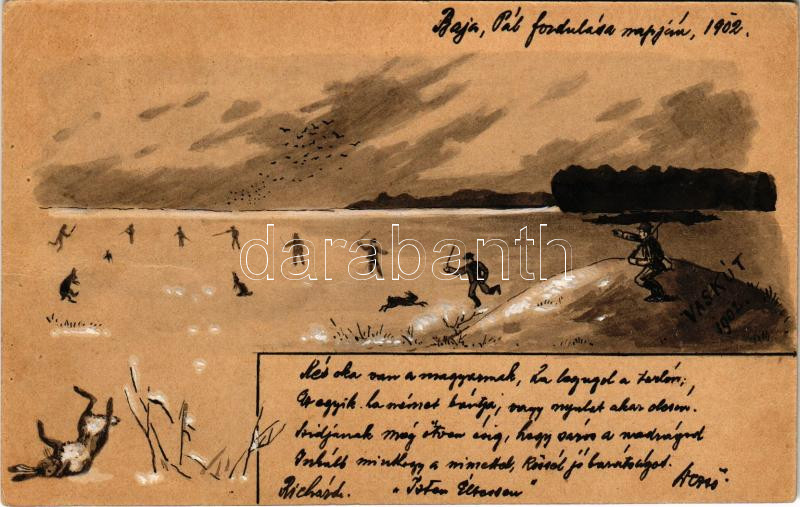 Baja, Pál fordulása napján, 1902.
darabanth
VASKÚT
1902.
Két oka van a magyarnak, ha lagugol a tarlón;
Az egyik ha német bántja, vagy nyulat akar olcsón.
Szidjanak még ötven évig, hogy sáros a nadrágod
Inkább minthogy a némettel, kössél jó barátságot.
Richárd. "Isten Éltessen" Dezső